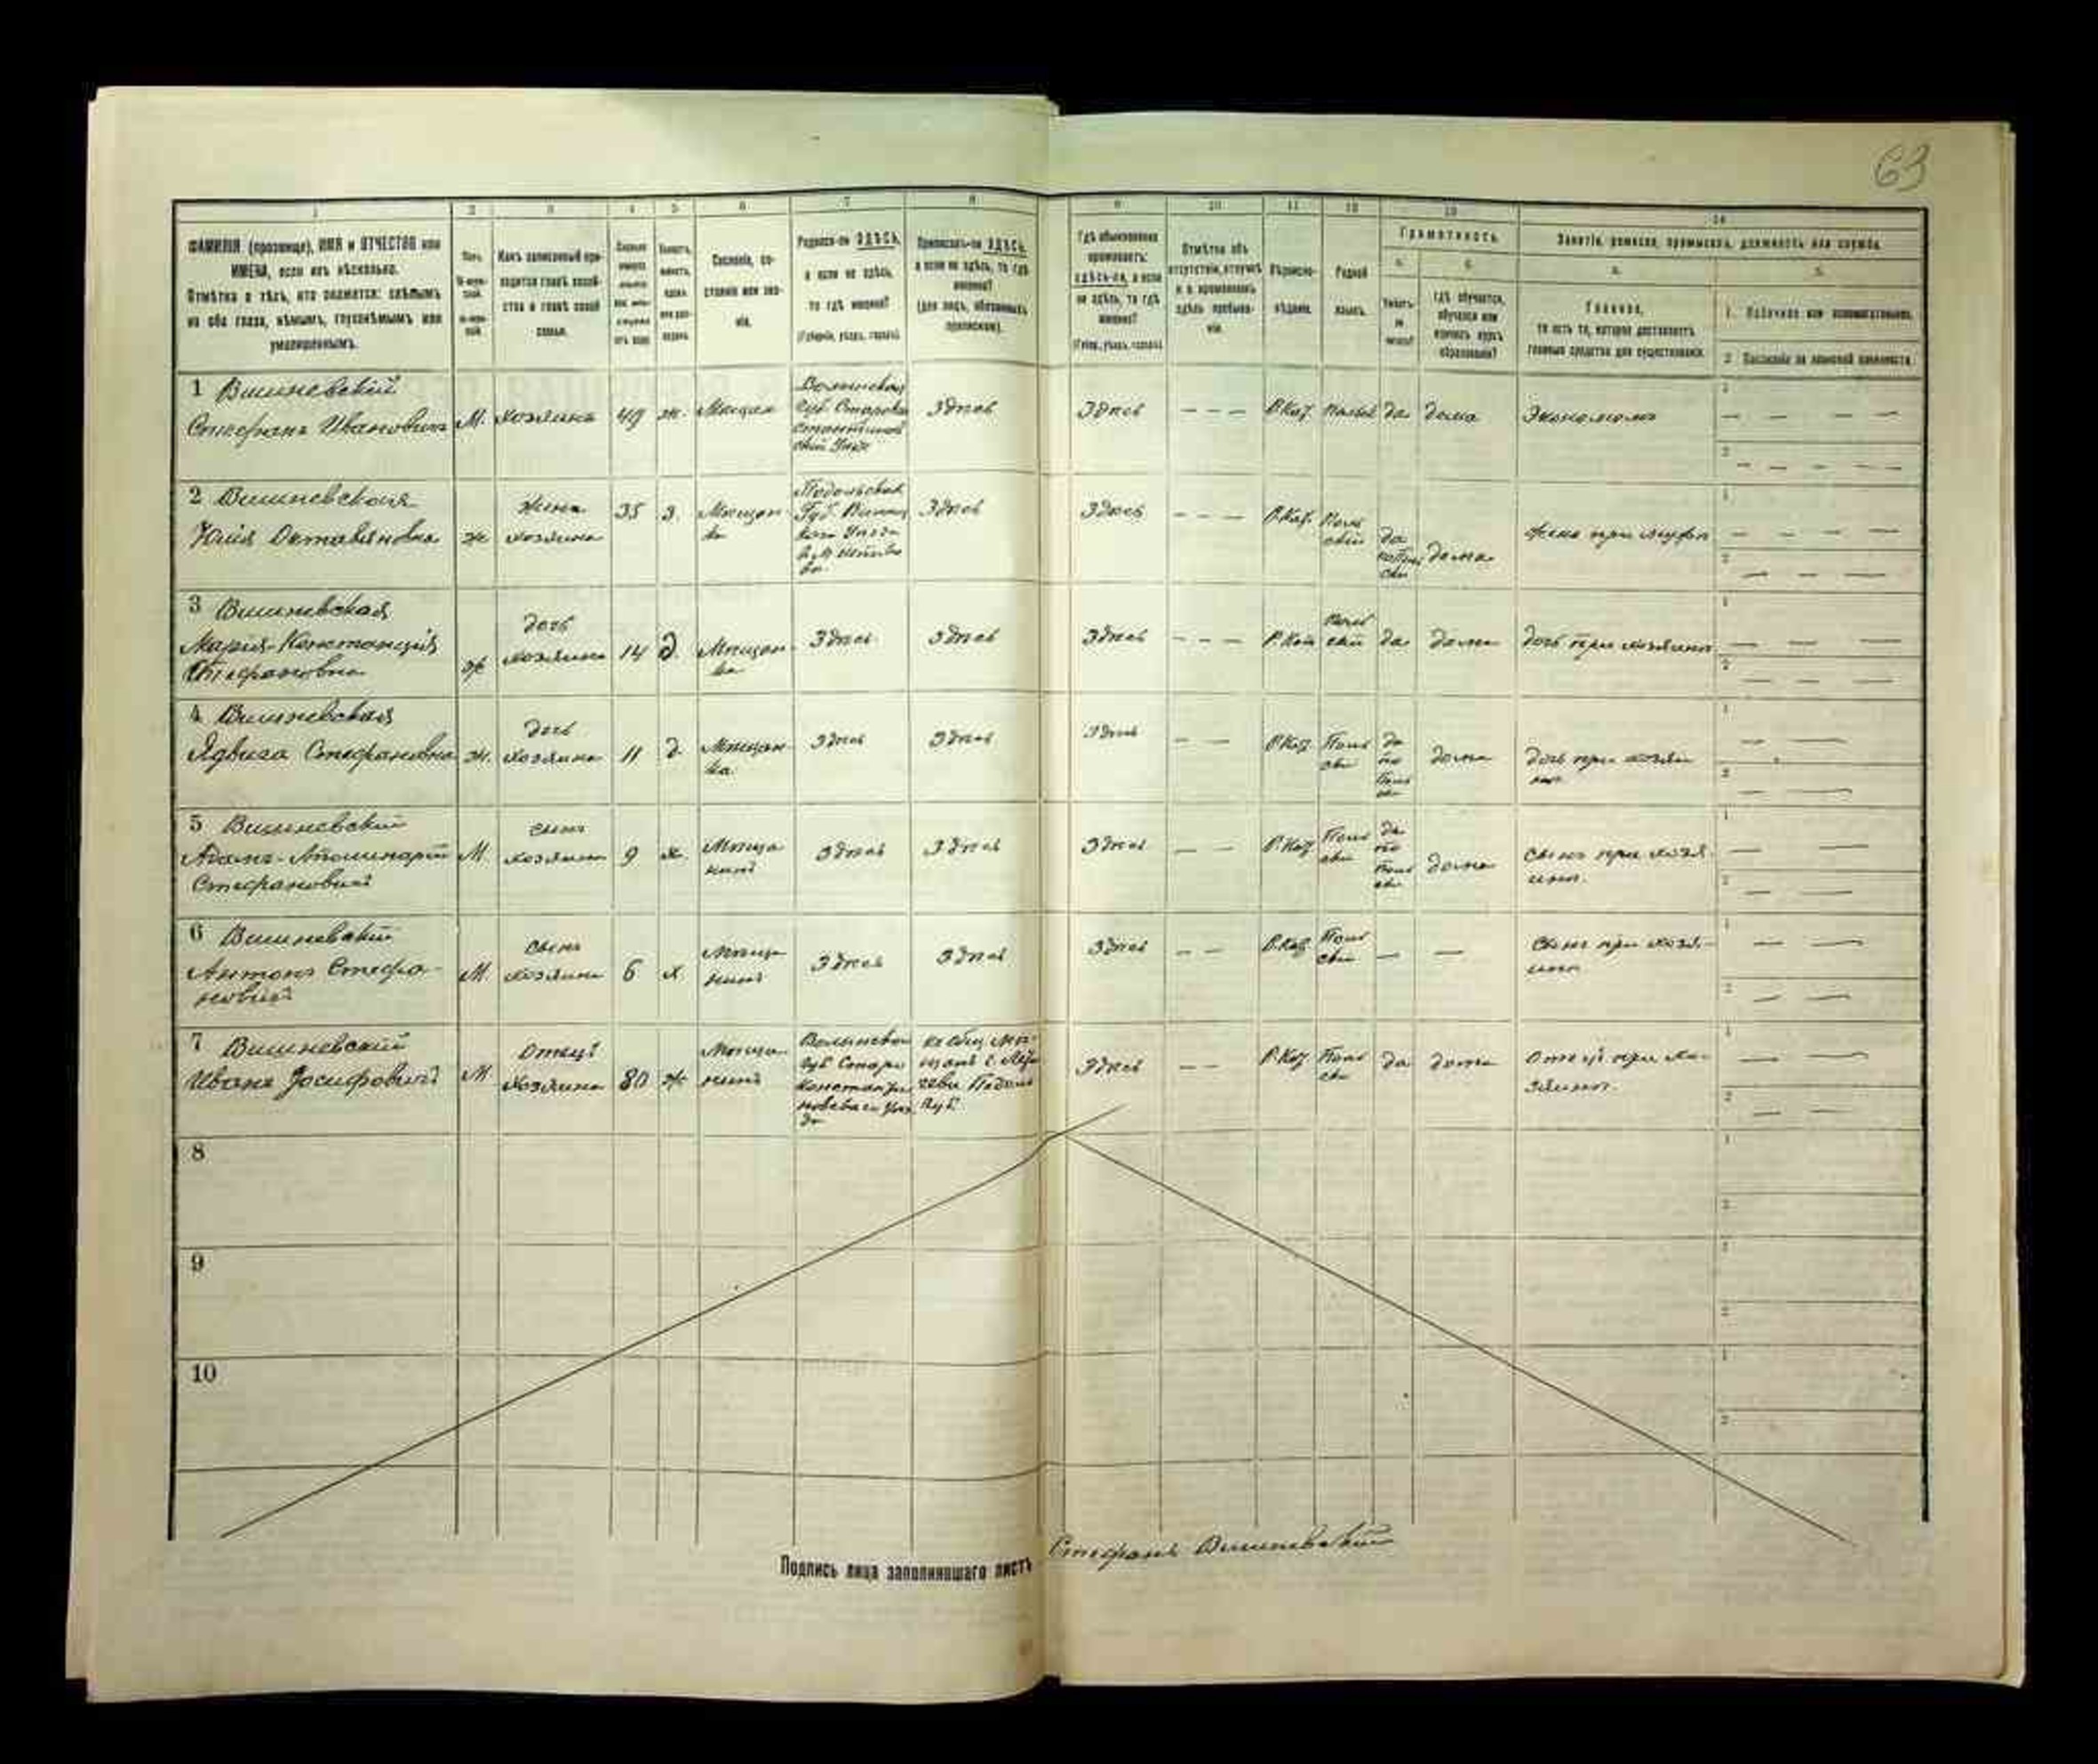 63
1 2 3 4 5 6 7 8 9 10 11 12 13 14
ФАМИЛІЯ (прозвище), ИМЯ и ОТЧЕСТВО или
ИМЕНА, если ихъ нѣсколько.
Отмѣтка о тѣхъ, кто окажется: слѣпымъ
на оба глаза, нѣмымъ, глухонѣмымъ или
умалишеннымъ.
Полъ.
Какъ записанный при-
ходится главѣ хозяй-
ства и главѣ своей
семьи.
Сословіе, со-
стояніе или зва-
ніе.
Родился-ли ЗДѢСЬ,
а если не здѣсь,
то гдѣ именно?
(Губернія, уѣздъ, городъ).
Приписанъ-ли ЗДѢСЬ,
а если не здѣсь, то гдѣ
именно?
(для лицъ, обязанныхъ
припискою).
Гдѣ обыкновенно
проживаетъ:
здѣсь-ли, а если
не здѣсь, то гдѣ
именно?
(Губер., уѣздъ, городъ).
Отмѣтка объ
отсутствіи, отлучкѣ
и о временномъ
здѣсь пребыва-
ніи.
Вѣроиспо-
вѣданіе.
Родной
языкъ.
Грамотность.
а.
Умѣетъ
ли
читать?
б.
гдѣ обучается,
обучался или
кончилъ курсъ
образованія?
Занятіе, ремесло, промыселъ, должность или служба.
а.
Главное,
то есть то, которое доставляетъ
главныя средства для существованія.
б.
1. Побочное или вспомогательное.
2. Положеніе по воинской повинности.
1 Вишневскій
Стефанъ Ивановичъ М. Хозяинъ 49 ж.
Волынской
Губ. Старокон
Здѣсь Здѣсь — — — Р.Кат. да дома Экономомъ
2 Вишневская
Юлія Октавіановна ж
жена
хозяина
35 з. Мѣщан-
ка
Подольской
Губ. Винниц
Здѣсь Здѣсь — — — Р.Кат. Поль
скій
да
дома жена при мужѣ
3 Вишневская
Марія-Констанція
Стефановна ж
дочь
хозяина
14 д. Мѣщан-
ка
Здѣсь Здѣсь Здѣсь — — — Р.Кат Поль
скій
да дома дочь при хозяинѣ
4 Вишневская
Ядвига Стефановна ж.
дочь
хозяина
11 д. Мѣщан-
ка.
Здѣсь Здѣсь Здѣсь — — Р.Кат. Поль
ски
да
по
Поль
ски
дома дочь при хозяи
нѣ.
5 Вишневскій
Адамъ-Аполинарій
Стефановичъ М.
сынъ
хозяина
9 х. Мѣща
нинъ
Здѣсь Здѣсь Здѣсь — — Р.Кат Поль
ски
да
по
Поль
ски
дома сынъ при хозя-
инѣ.
6 Вишневскій
Антонъ Стефа-
новичъ М.
сынъ
хозяина
6 х. Мѣща
нинъ
Здѣсь Здѣсь Здѣсь — — Р.Кат. Поль
ски
— — сынъ при хозя-
инѣ
7 Вишневскій
Иванъ Іосифовичъ М.
Отецъ
хозяина
80 ж Мѣща-
нинъ
Волынской
Губ. Старо
константи
новскаго Уѣз
да
Губ.
Здѣсь — — Р.Кат Поль
ски
да дома Отецъ при хо-
зяинѣ.
8
9
10
Подпись лица заполнившаго листъ Стефанъ Вишневскій